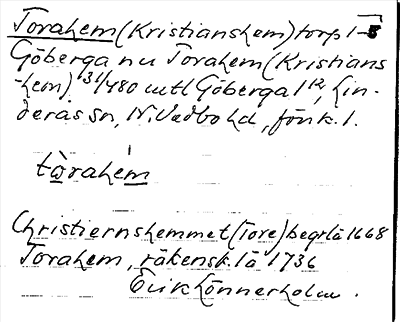 Torahem (Kristianshem) torp 1-5
Göberga nu Torahem (Kristians
-hem) 131/480 mtl Göberga 1 12, Lin-
deräs sn, N. Vedbo hd, Jönk. l.
tòrahem
Christiernshemmet (Tore) begrlä 1668
Torahem, räkensk. lä 1736
Erik Lönnerholm.